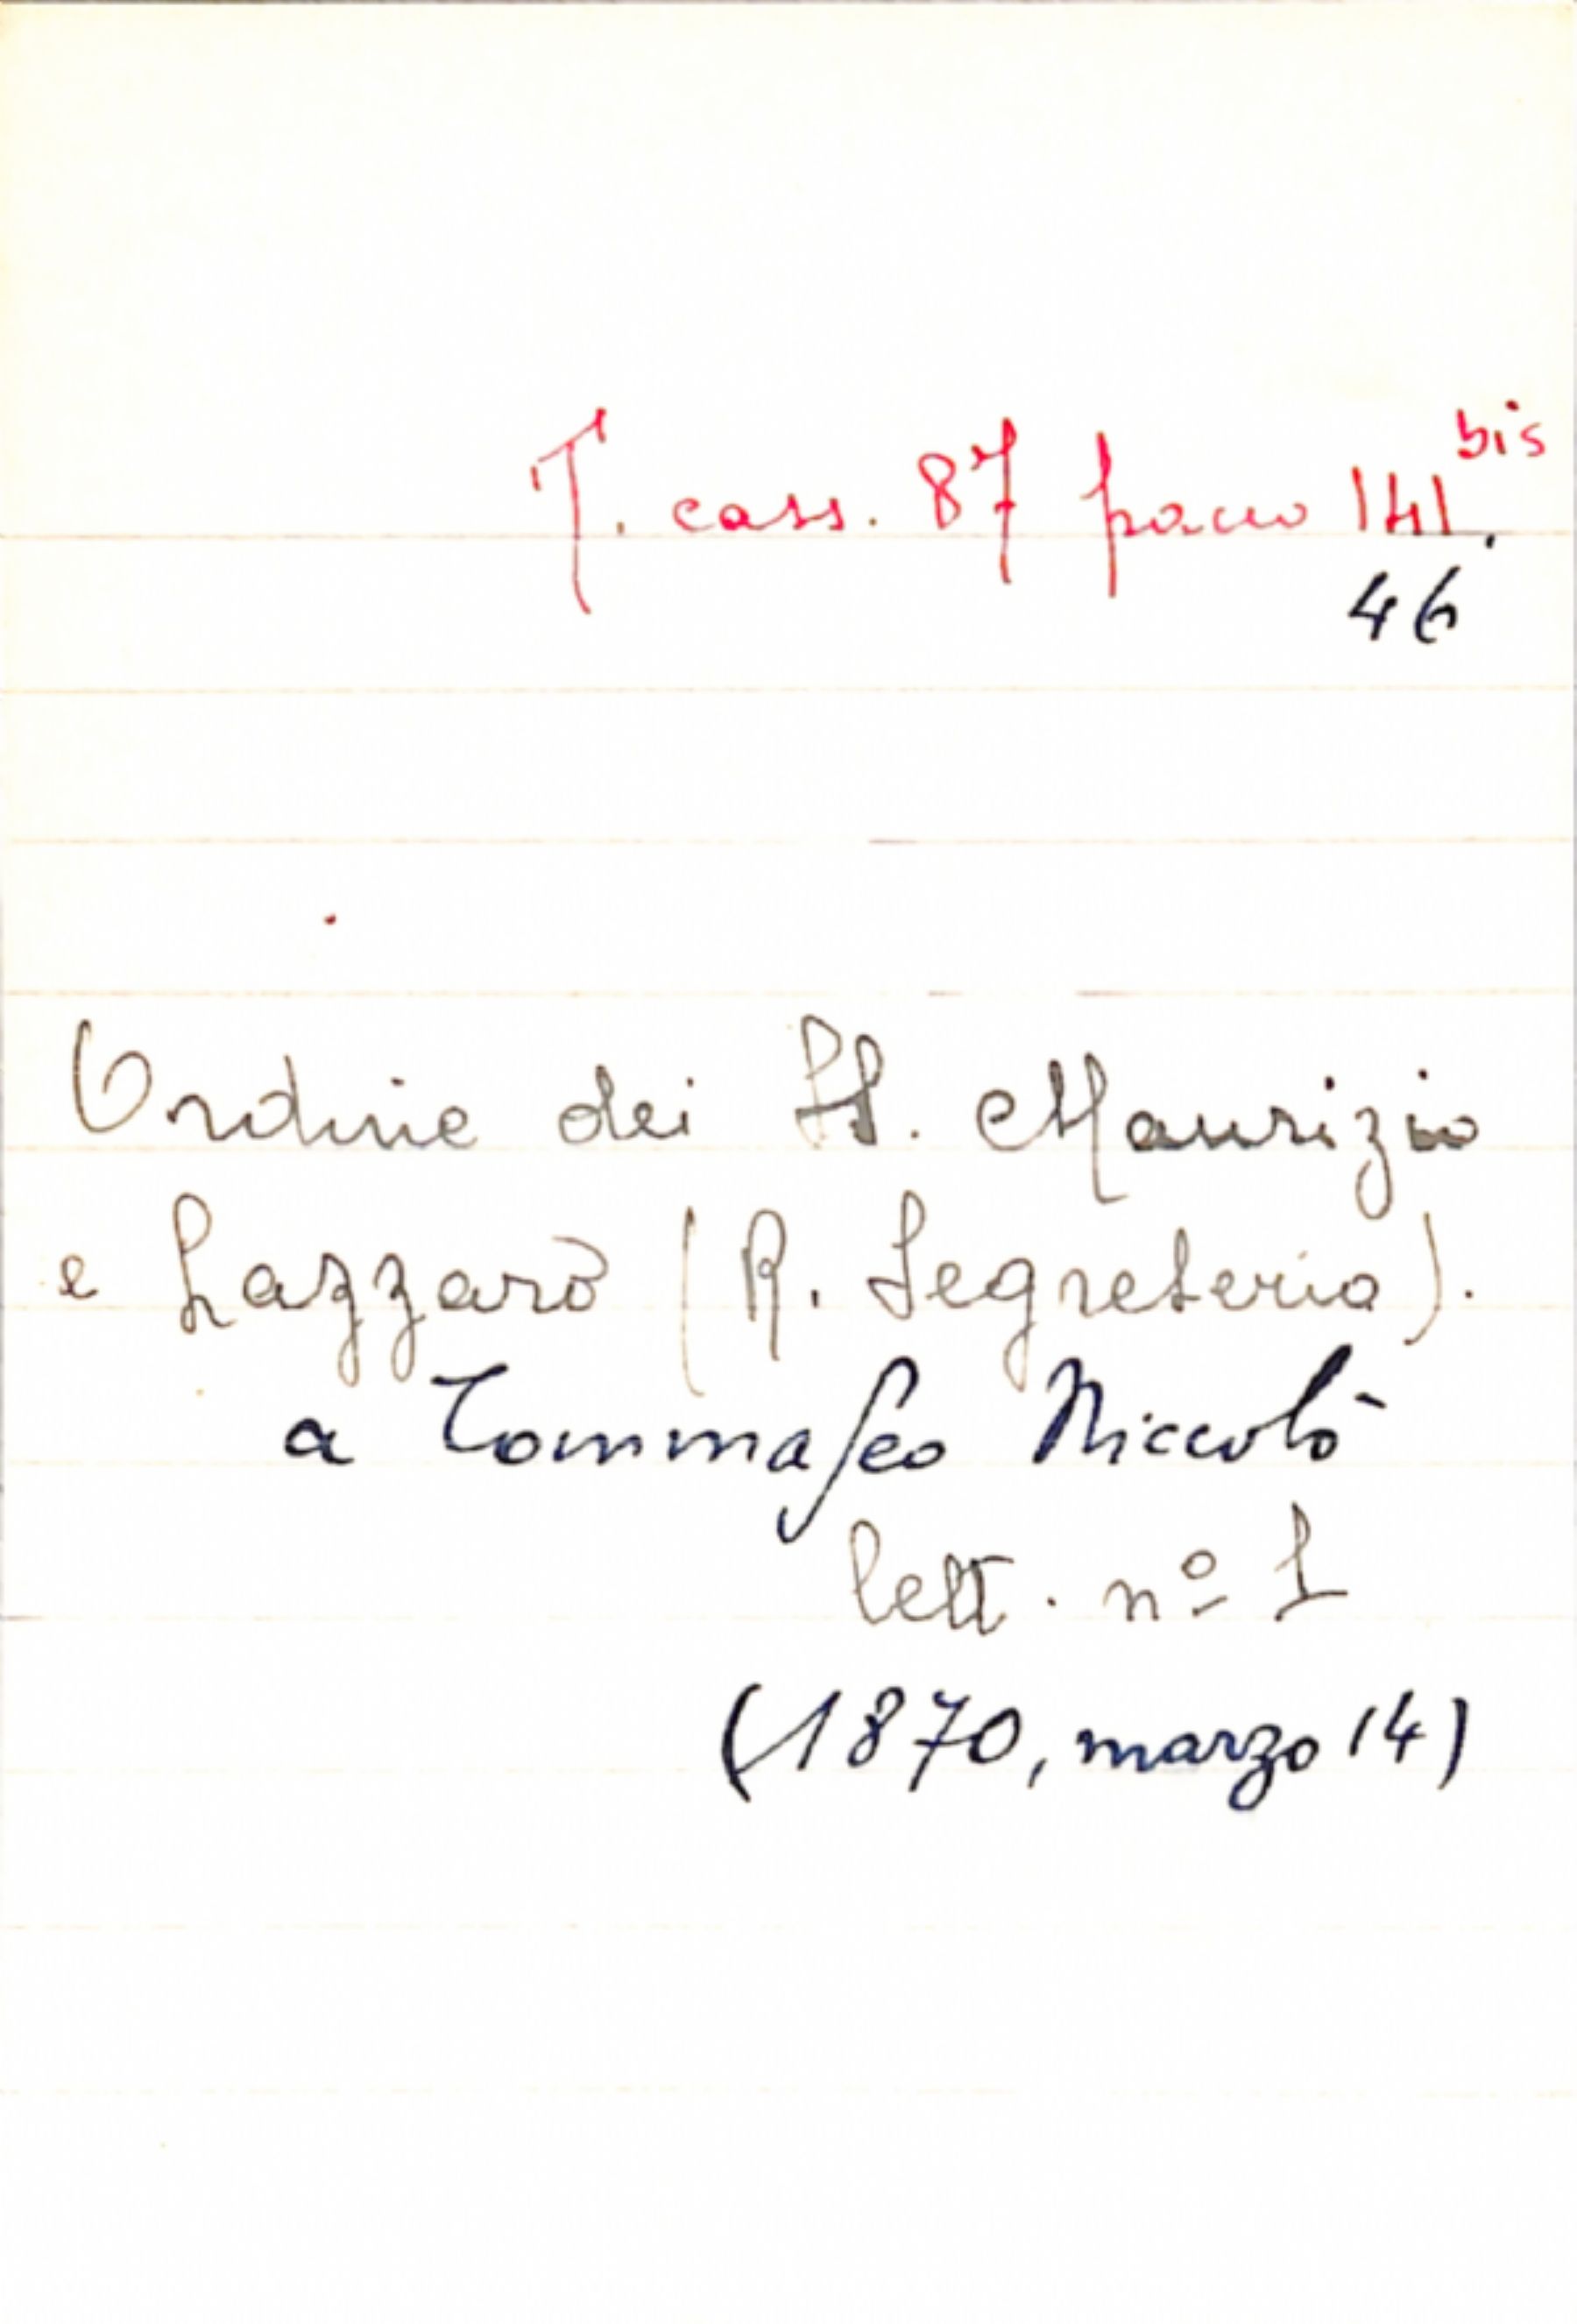 T. cass. 87 pacco 141 bis.
46
Ordine dei SS. Maurizio
e Lazzaro (R. Segreteria).
a Tommaseo Niccolò
lett. nº 1
(1870, marzo 14)